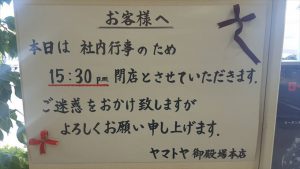 お客様へ
本日は 社内行事の ため
15:30 pm 閉店とさせていただきます.
ご迷惑をおかけ致しますが
よろしくお願い申し上げます.
ヤマトヤ 御殿場本店